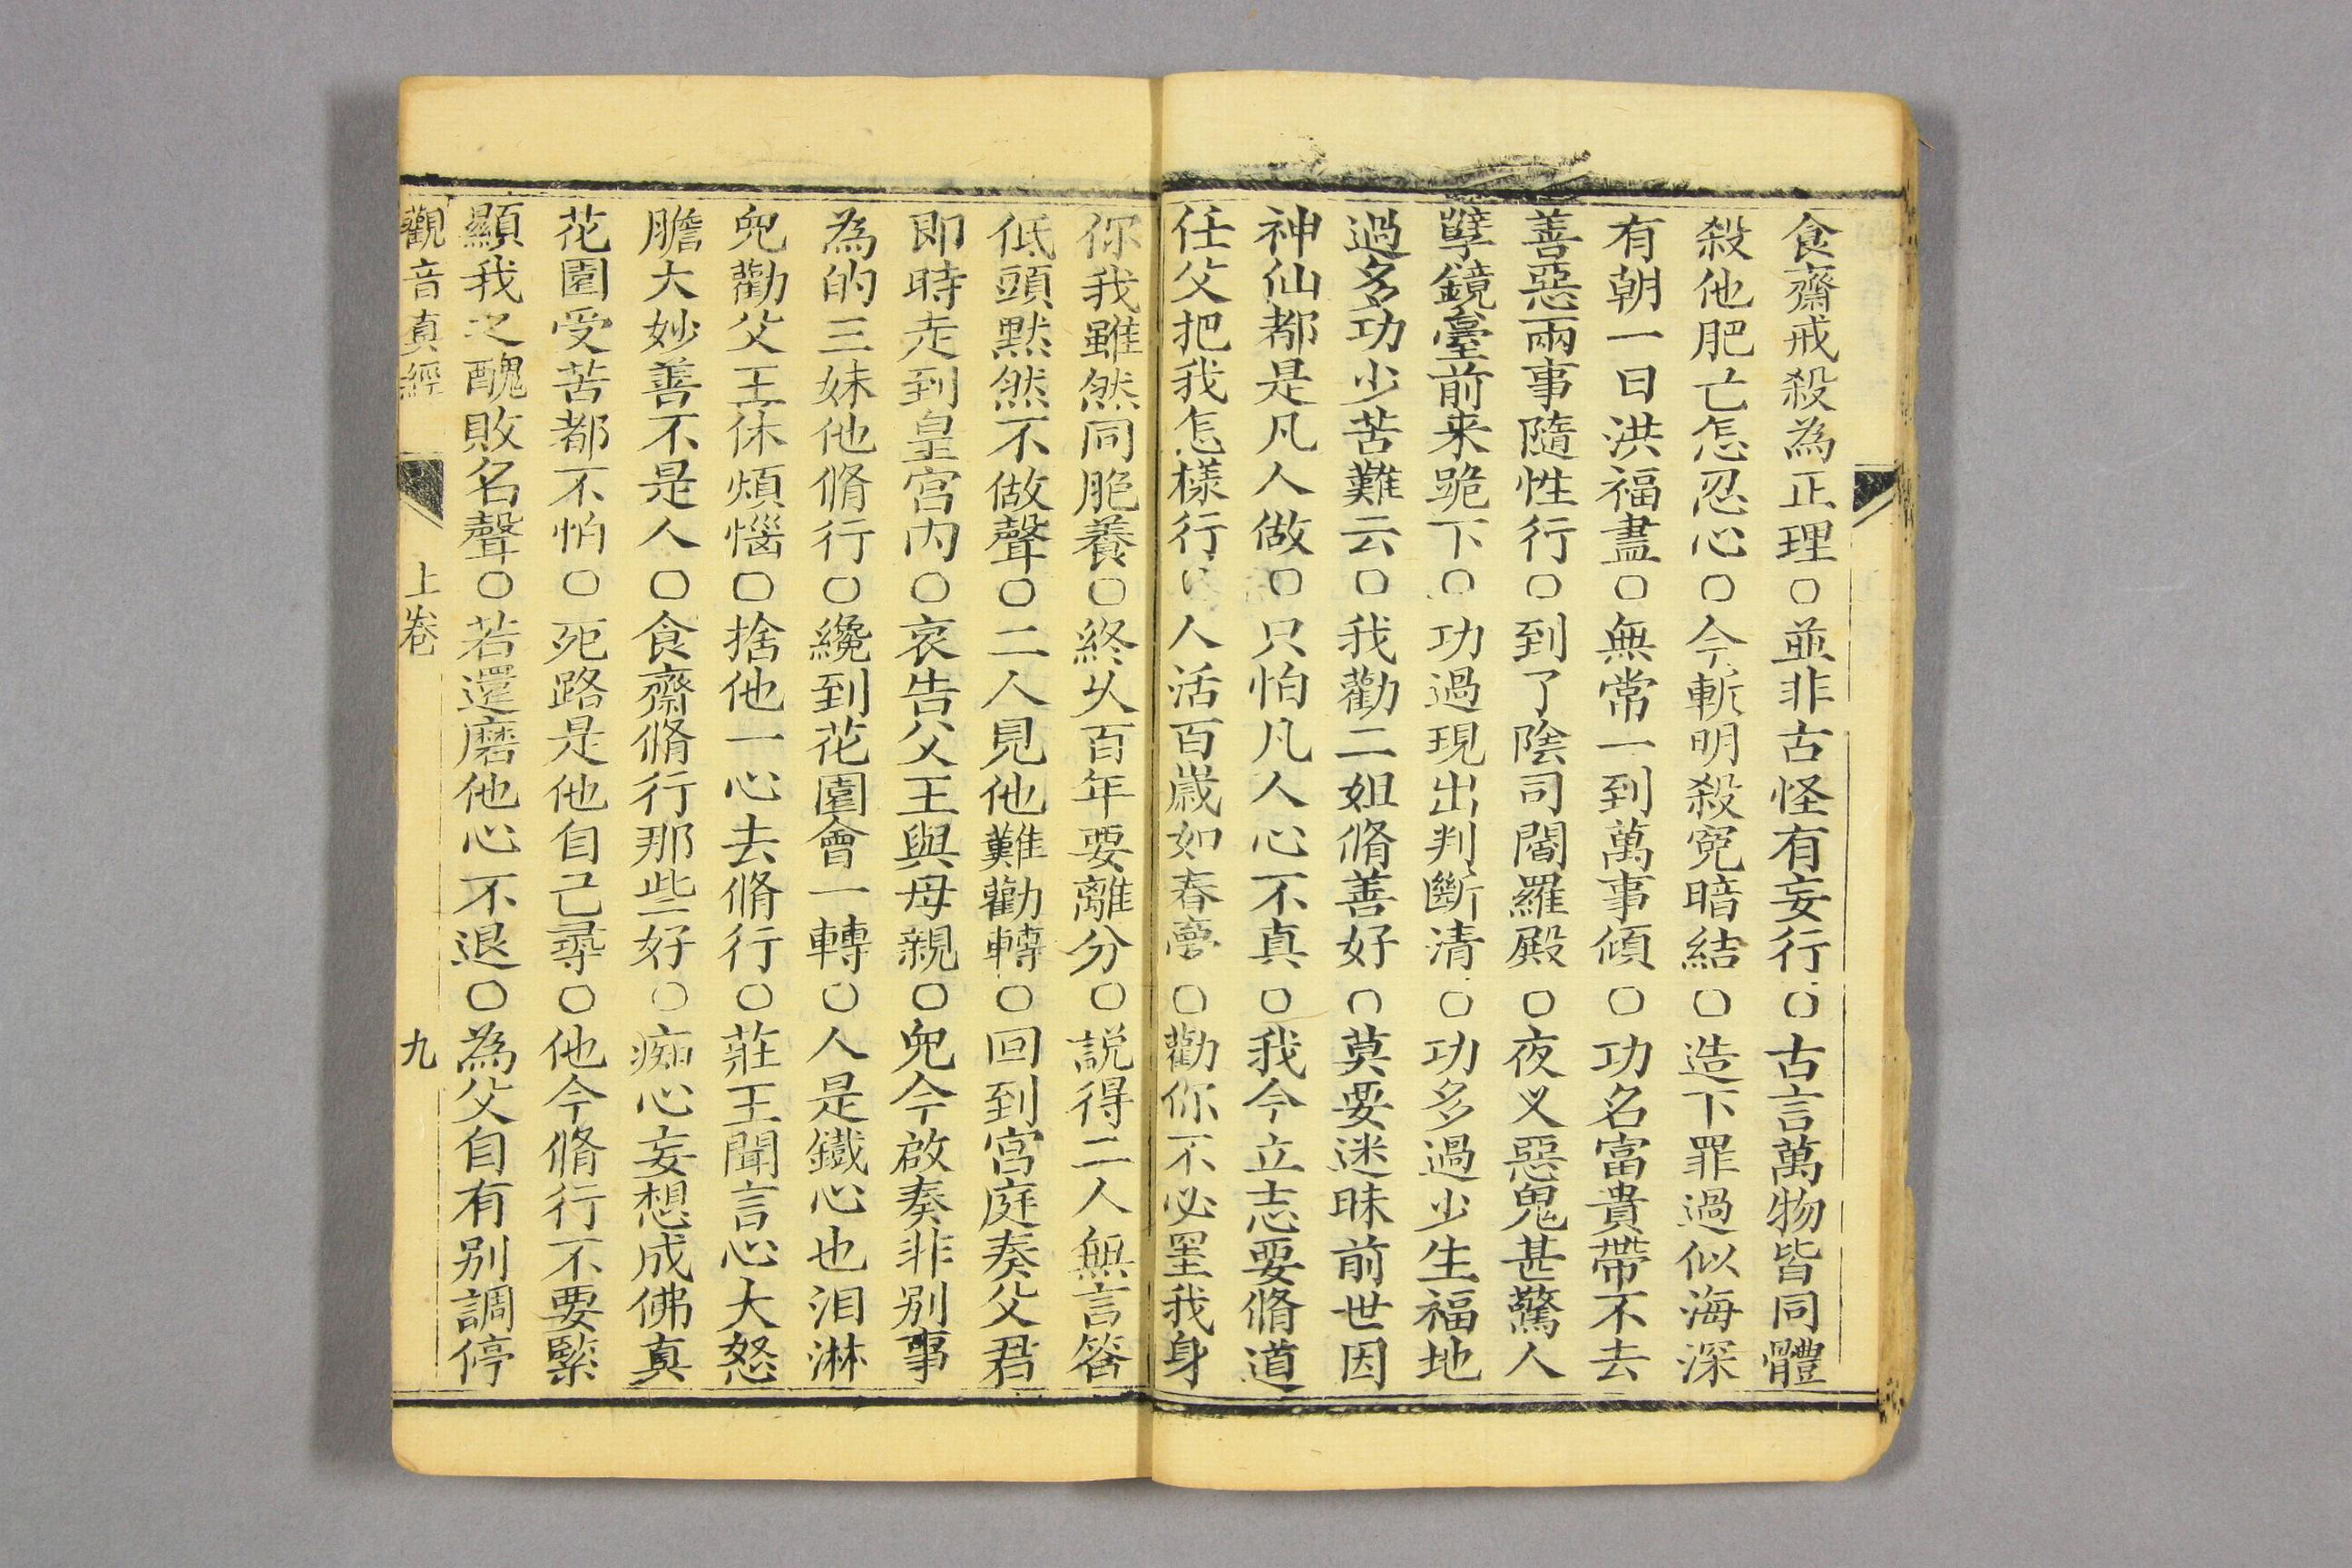 食齋戒殺為正理○並非古怪有妄行○古言萬物皆同體
殺他肥亡怎忍心○今斬明殺寃暗結○造下罪過似海深
有朝一日洪福盡○無常一到萬事傾○功名富貴帶不去
善惡兩事隨性行○到了陰司閻羅殿○夜叉惡鬼甚驚人
孽鏡臺前来跪下○功過現出判斷清○功多過少生福地
過多功少苦難云○我勸二姐脩善好○莫要迷昧前世因
神仙都是凡人做○只怕凡人心不真○我今立志要脩道
任父把我怎樣行○人活百歲如春夢○勸你不必罣我身
你我雖然同胞養○終久百年要離分○説得二人無言答
低頭默然不做聲○二人見他難勸轉○回到宮庭奏父君
即時走到皇宮内○哀告父王與母親○兒今啟奏非别事
為的三妹他脩行○纔到花園會一轉○人是鐵心也泪淋
兒勸父王休煩惱○捨他一心去脩行○莊王聞言心大怒
膽大妙善不是人○食齋脩行那些好○痴心妄想成佛真
花園受苦都不怕○死路是他自己尋○他今脩行不要緊
顯我之醜敗名聲○若還磨他心不退○為父自有别調停
觀音真經 上卷 九